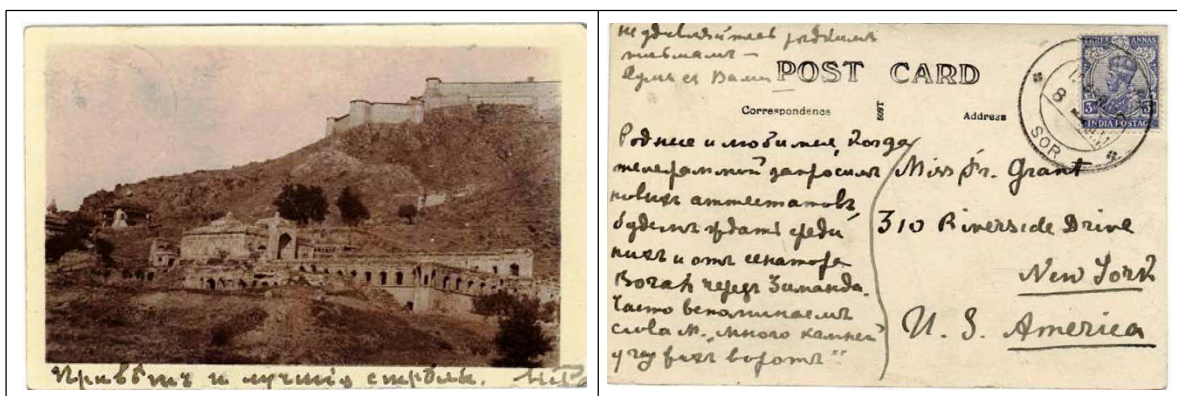 Привѣтъ и лучшія стрѣлы. НР
не удивляйтесь рѣдкимъ
письмамъ –
Духъ съ Вами
POST CARD
Correspondence
Address
THREE ANNAS
3 3
INDIA POSTAGE
8
SOR
Родные и любимые, когда
телеграммой запросилъ
новыхъ аттестатовъ,
будемъ ждать среди
нихъ и отъ сенатора
Borah черезъ Зиманда.
Часто вспоминаемъ
слова М. „много камней
у чужихъ воротъ"
Miss Fr. Grant
310 Riverside Drive
New York
U. S. America